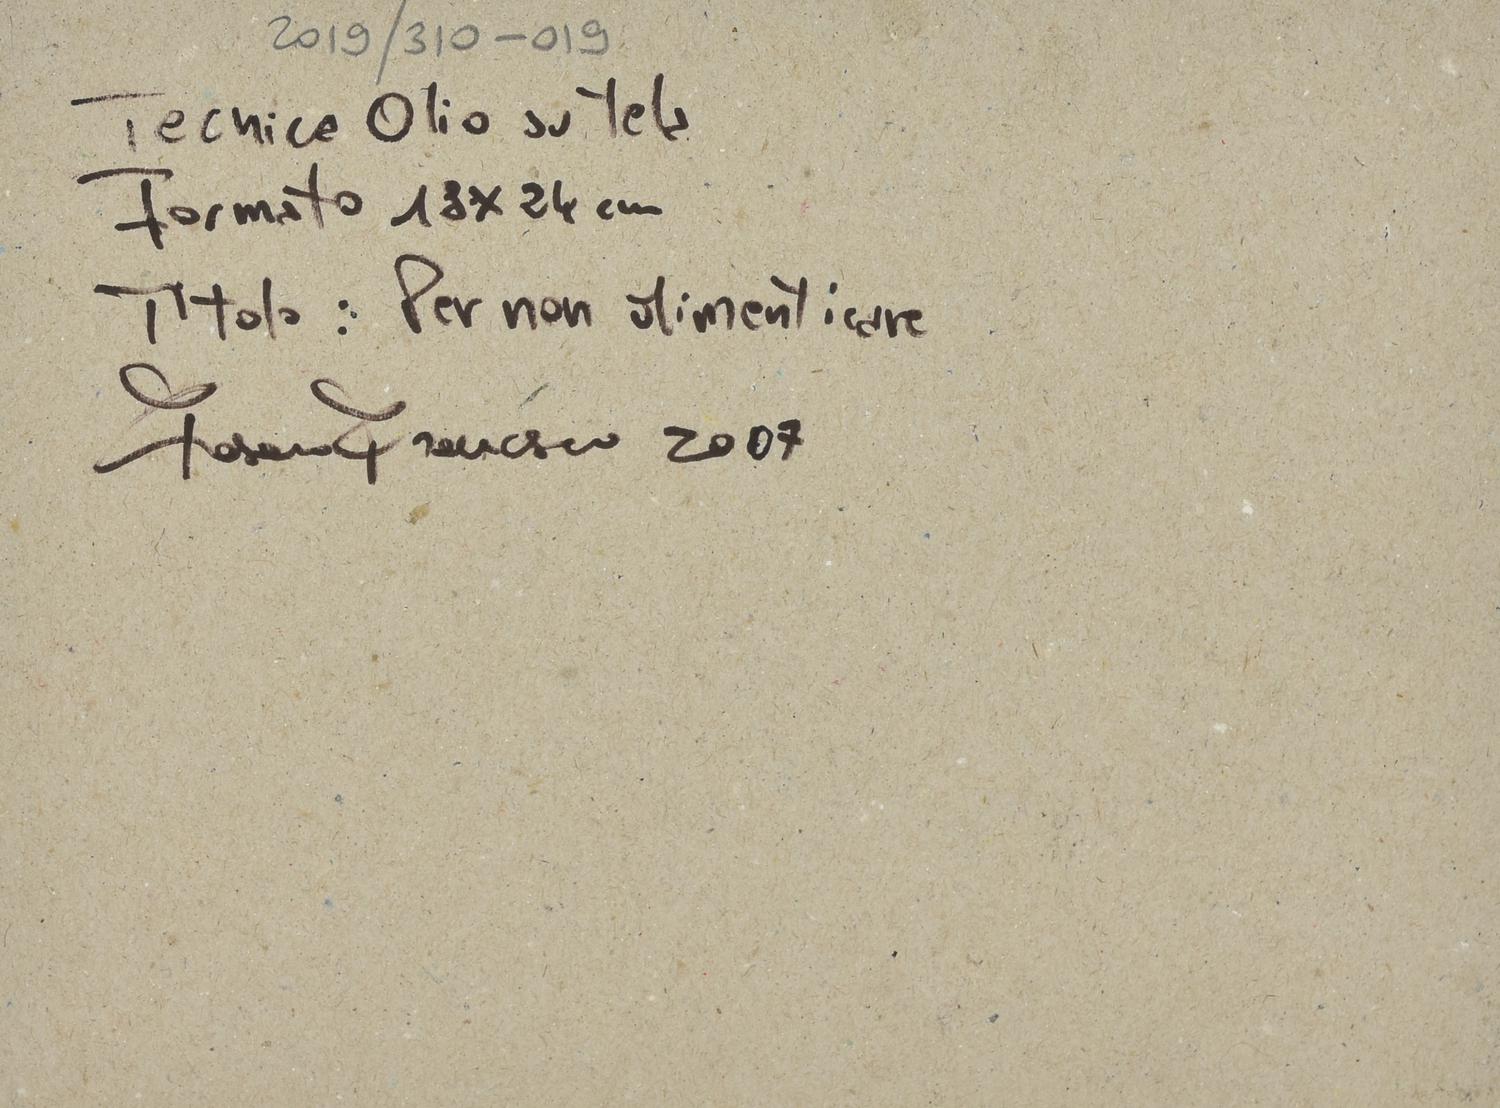 2019/310-019
Tecnica Olio su tela
Formato 18x24 cm
Titolo: Per non dimenticare
Francesco 2007